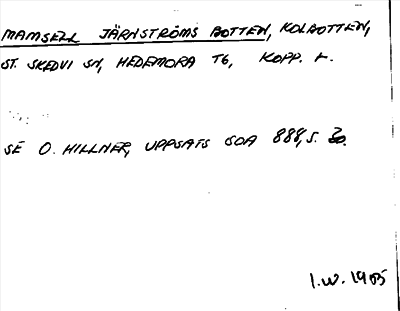 MAMSELL JÄRNSTRÖMS BOTTEN, KOLBOTTEN,
ST. SKEDVI SN, HEDEMORA TG, KOPP. L.
SE O. HILLNER, UPPSATS SOA 888, S.
I.W. 1985